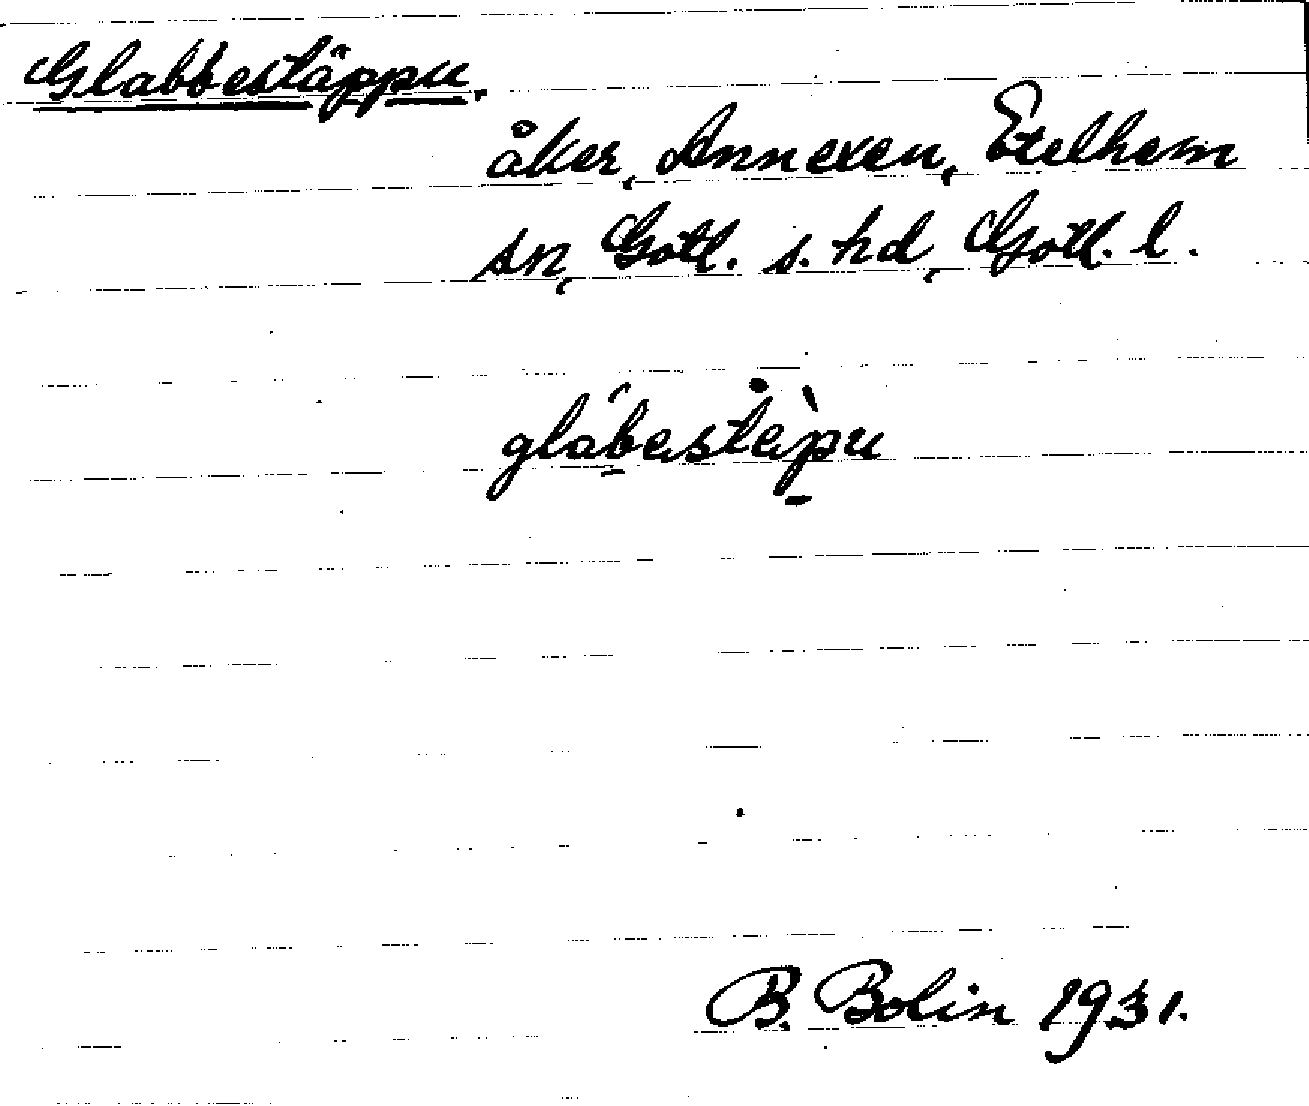 Glabbestäppu.
åker, Annexen, Etelhem
sn, Gotl. s. hd, Gotl. l.
glábestep̀u
B. Bolin 1931.